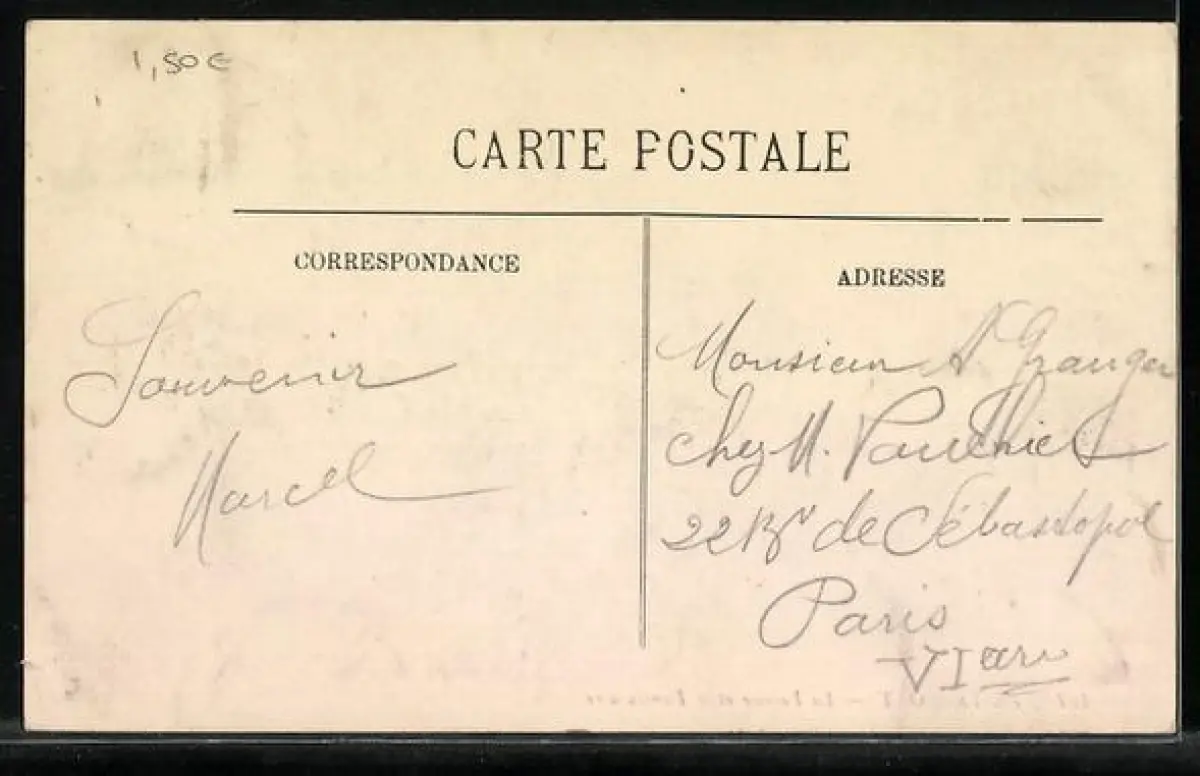 1,50€
CARTE POSTALE
CORRESPONDANCE
Souvenir
Marcel
ADRESSE
Monsieur A Granger
chez M.
22 Bv de Sébastopol
Paris
VI arr